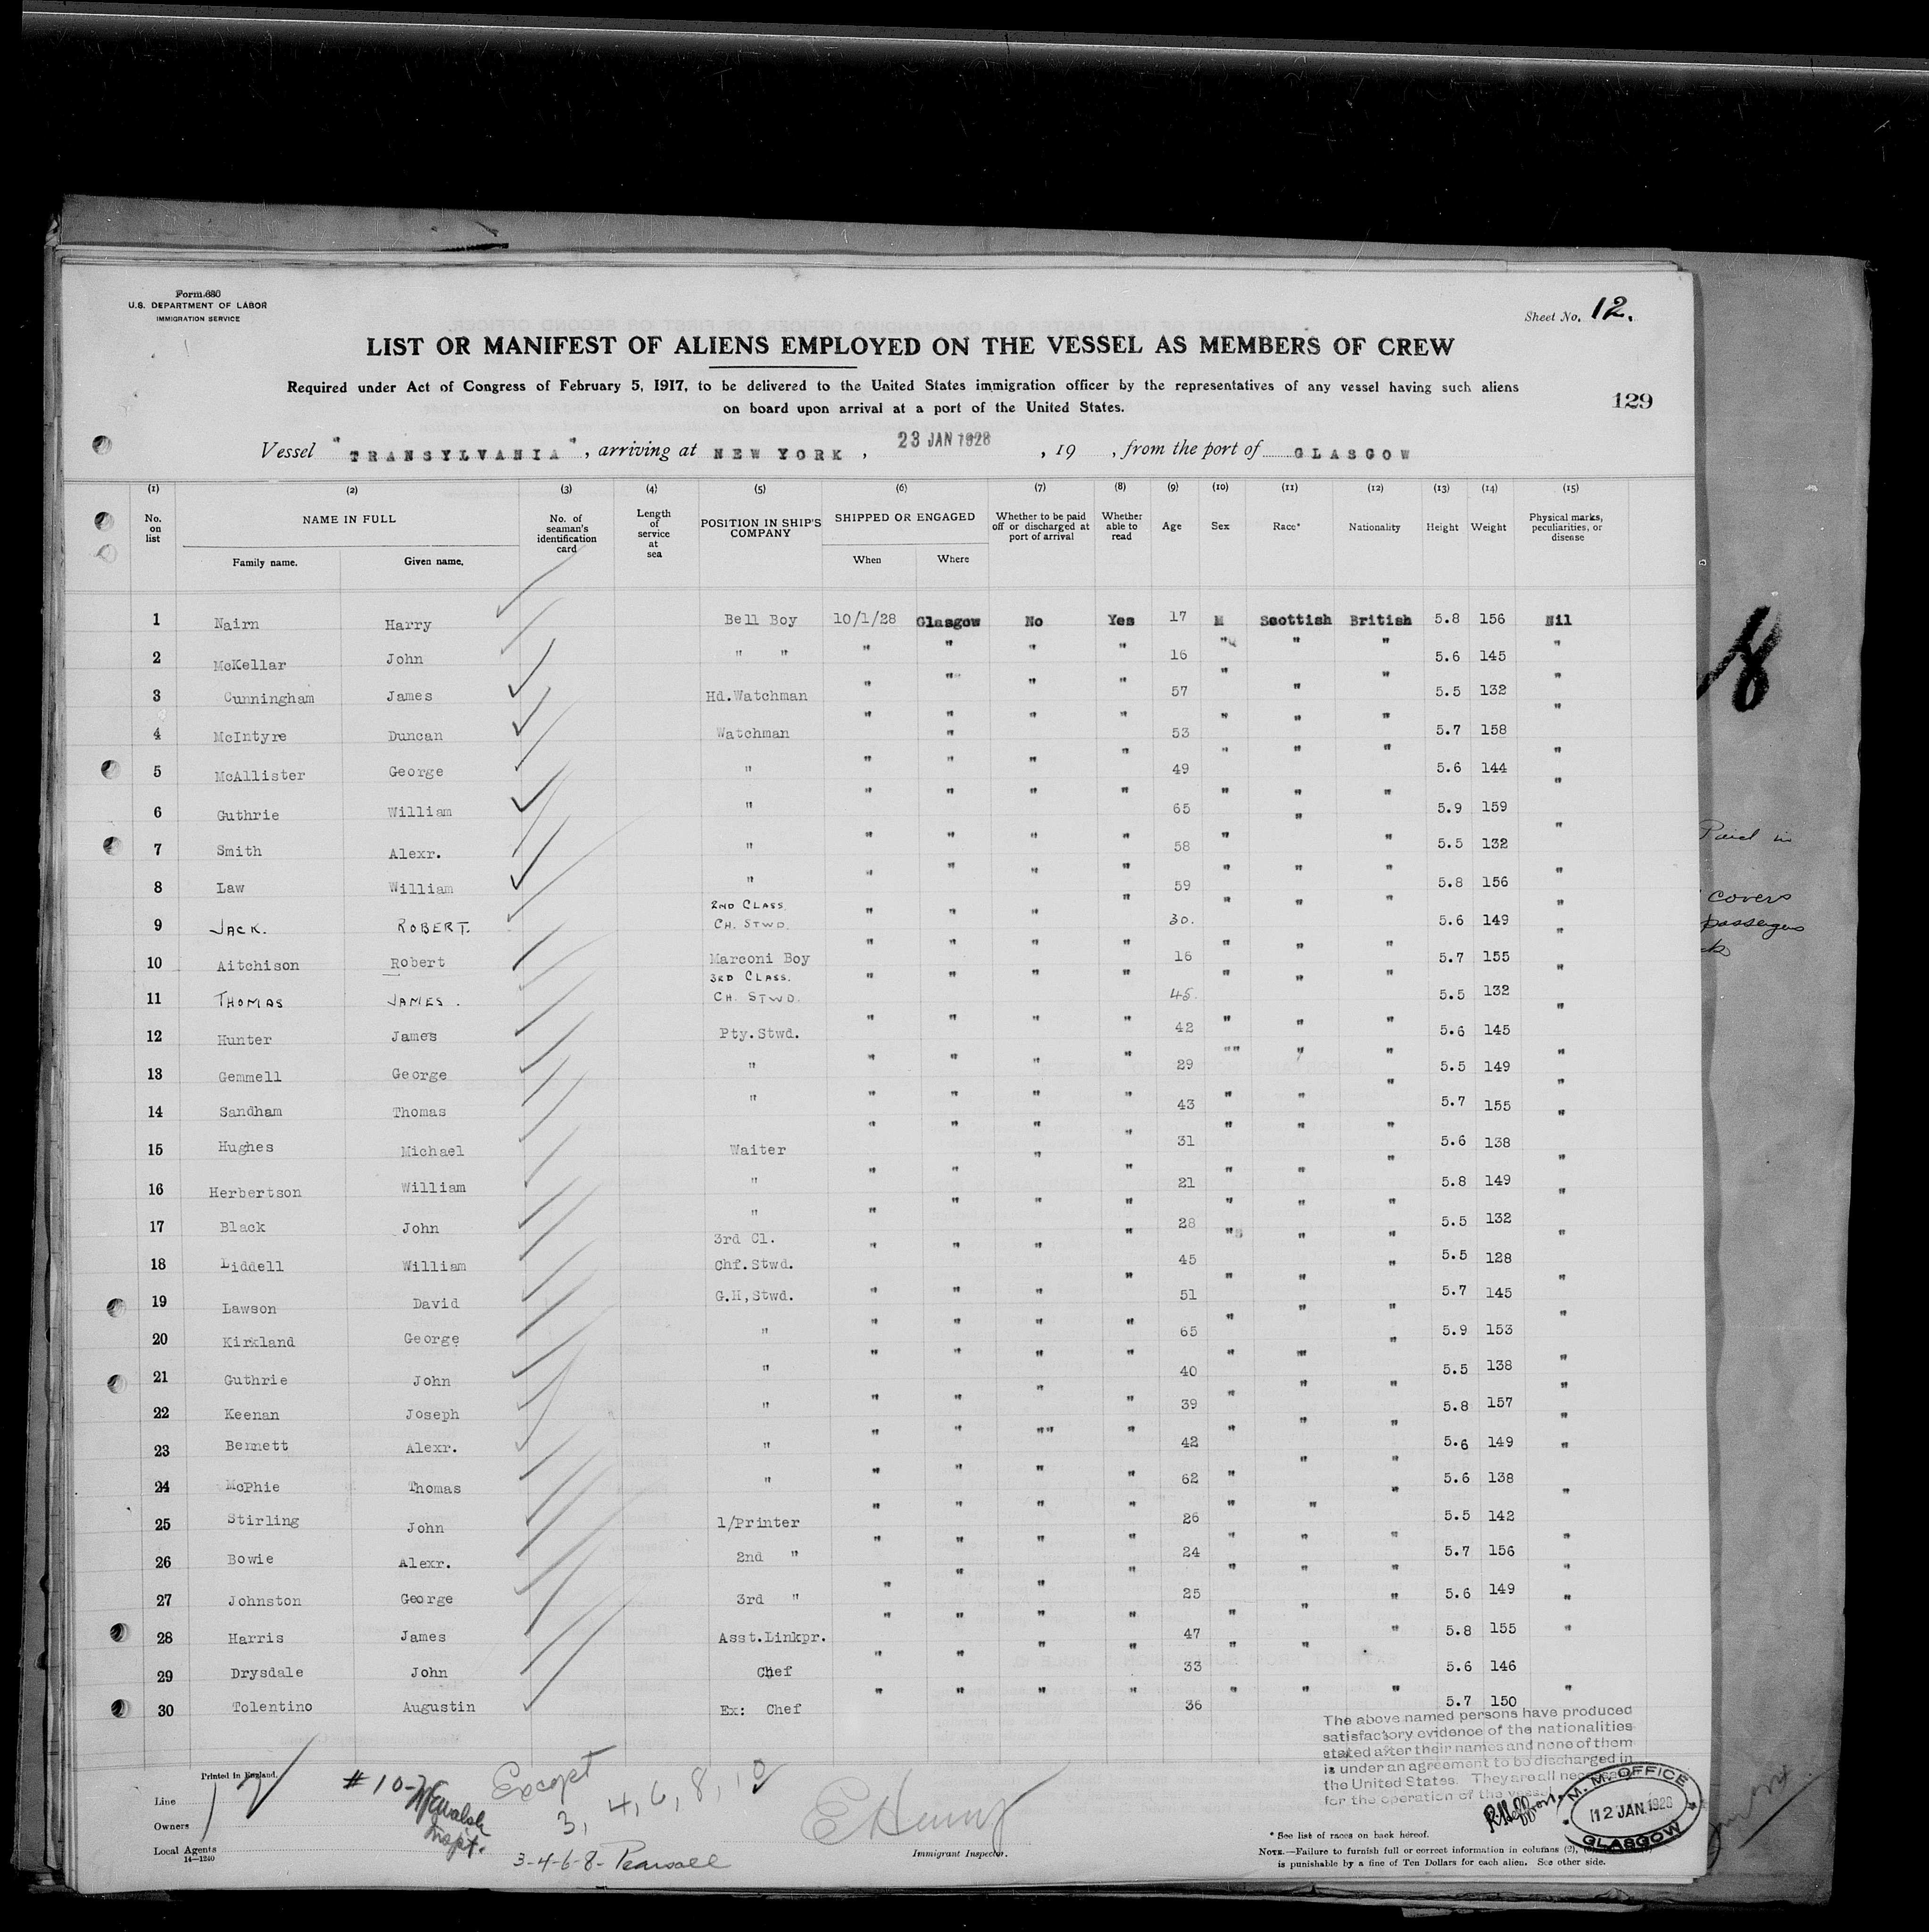 Form 680
U.S. DEPARTMENT OF LABOR
IMMIGRATION SERVICE
Sheet No. 12.
LIST OR MANIFEST OF ALIENS EMPLOYED ON THE VESSEL AS MEMBERS OF CREW
Required under Act of Congress of February 5, 1917, to be delivered to the United States immigration officer by the representatives of any vessel having such aliens
on board upon arrival at a port of the United States.
129
Vessel "TRANSYLVANIA", arriving at NEW YORK, 23 JAN 1928, 19 , from the port of GLASGOW
(1) (2) (3) (4) (5) (6) (7) (8) (9) (10) (11) (12) (13) (14) (15)
No. on list NAME IN FULL Family name. Given name. No. of seaman's identification card Length of service at sea POSITION IN SHIP'S COMPANY SHIPPED OR ENGAGED When Where Whether to be paid off or discharged at port of arrival Whether able to read Age Sex Race* Nationality Height Weight Physical marks, peculiarities, or disease
1 Nairn Harry Bell Boy 10/1/28 Glasgow No Yes 17 M Scottish British 5.8 156 Nil
2 McKellar John " " " " " " 16 " " " 5.6 145 "
3 Cunningham James Hd.Watchman " " " " 57 " " " 5.5 132 "
4 McIntyre Duncan Watchman " " " " 53 " " " 5.7 158 "
5 McAllister George " " " " " 49 " " " 5.6 144 "
6 Guthrie William " " " " " 65 " " " 5.9 159 "
7 Smith Alexr. " " " " " 58 " " " 5.5 132 "
8 Law William " " " " " 59 " " " 5.8 156 "
9 JACK. ROBERT. 2ND CLASS. CH. STWD. " " " " 30. " " " 5.6 149 "
10 Aitchison Robert Marconi Boy " " " " 16 " " " 5.7 155 "
11 THOMAS JAMES. 3RD CLASS. CH. STWD. " " " " 45. " " " 5.5 132 "
12 Hunter James Pty.Stwd. " " " " 42 " " " 5.6 145 "
13 Gemmell George " " " " " 29 "" " " 5.5 149 "
14 Sandham Thomas " " " " " 43 " " " 5.7 155 "
15 Hughes Michael Waiter " " " " 31 " " " 5.6 138
16 Herbertson William " " " " " 21 " " " 5.8 149 "
17 Black John " " " " " 28 " " " 5.5 132 "
18 Liddell William 3rd Cl. Chf.Stwd. " " " " 45 " " " 5.5 128 "
19 Lawson David G.H,Stwd. " " " " 51 " " " 5.7 145 "
20 Kirkland George " " " " " 65 " " " 5.9 153 "
21 Guthrie John " " " " " 40 " " " 5.5 138 "
22 Keenan Joseph " " " " " 39 " " " 5.8 157 "
23 Bennett Alexr. " " " "" " 42 " " " 5.6 149 "
24 McPhie Thomas " " " " " 62 " " " 5.6 138
25 Stirling John 1/Printer " " " " 26 " " " 5.5 142 "
26 Bowie Alexr. 2nd " " " " " 24 " " " 5.7 156 "
27 Johnston George 3rd " " " " " 25 " " " 5.6 149 "
28 Harris James Asst.Linkpr. " " " " 47 " " " 5.8 155 "
29 Drysdale John Chef " " " " 33 " " 5.6 146
30 Tolentino Augustin Ex: Chef " " " " 36 " " " 5.7 150 "
The above named persons have produced
satisfactory evidence of the nationalities
stated after their names and none of them
is under an agreement to be discharged in
the United States. They are all necessary
for the operation of the vessel.
Printed in England.
Line
Owners
Local Agents
14—1240
# 10-
Inspt.
Except
3, 4, 6, 8, 10
3-4-6-8- Pearsall
Immigrant Inspector.
M. M. OFFICE
12 JAN. 1928
GLASGOW
* See list of races on back hereof.
NOTE.—Failure to furnish full or correct information in columns (2),
is punishable by a fine of Ten Dollars for each alien. See other side.
8
Paid in
covers
passengers